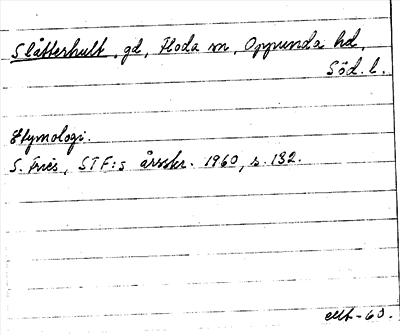 Slätterhult, gd, Floda sn, Oppunda hd,
Söd. l.
Etymologi.
S. Fries, STF:s årsskr. 1960, s. 132.
-60.